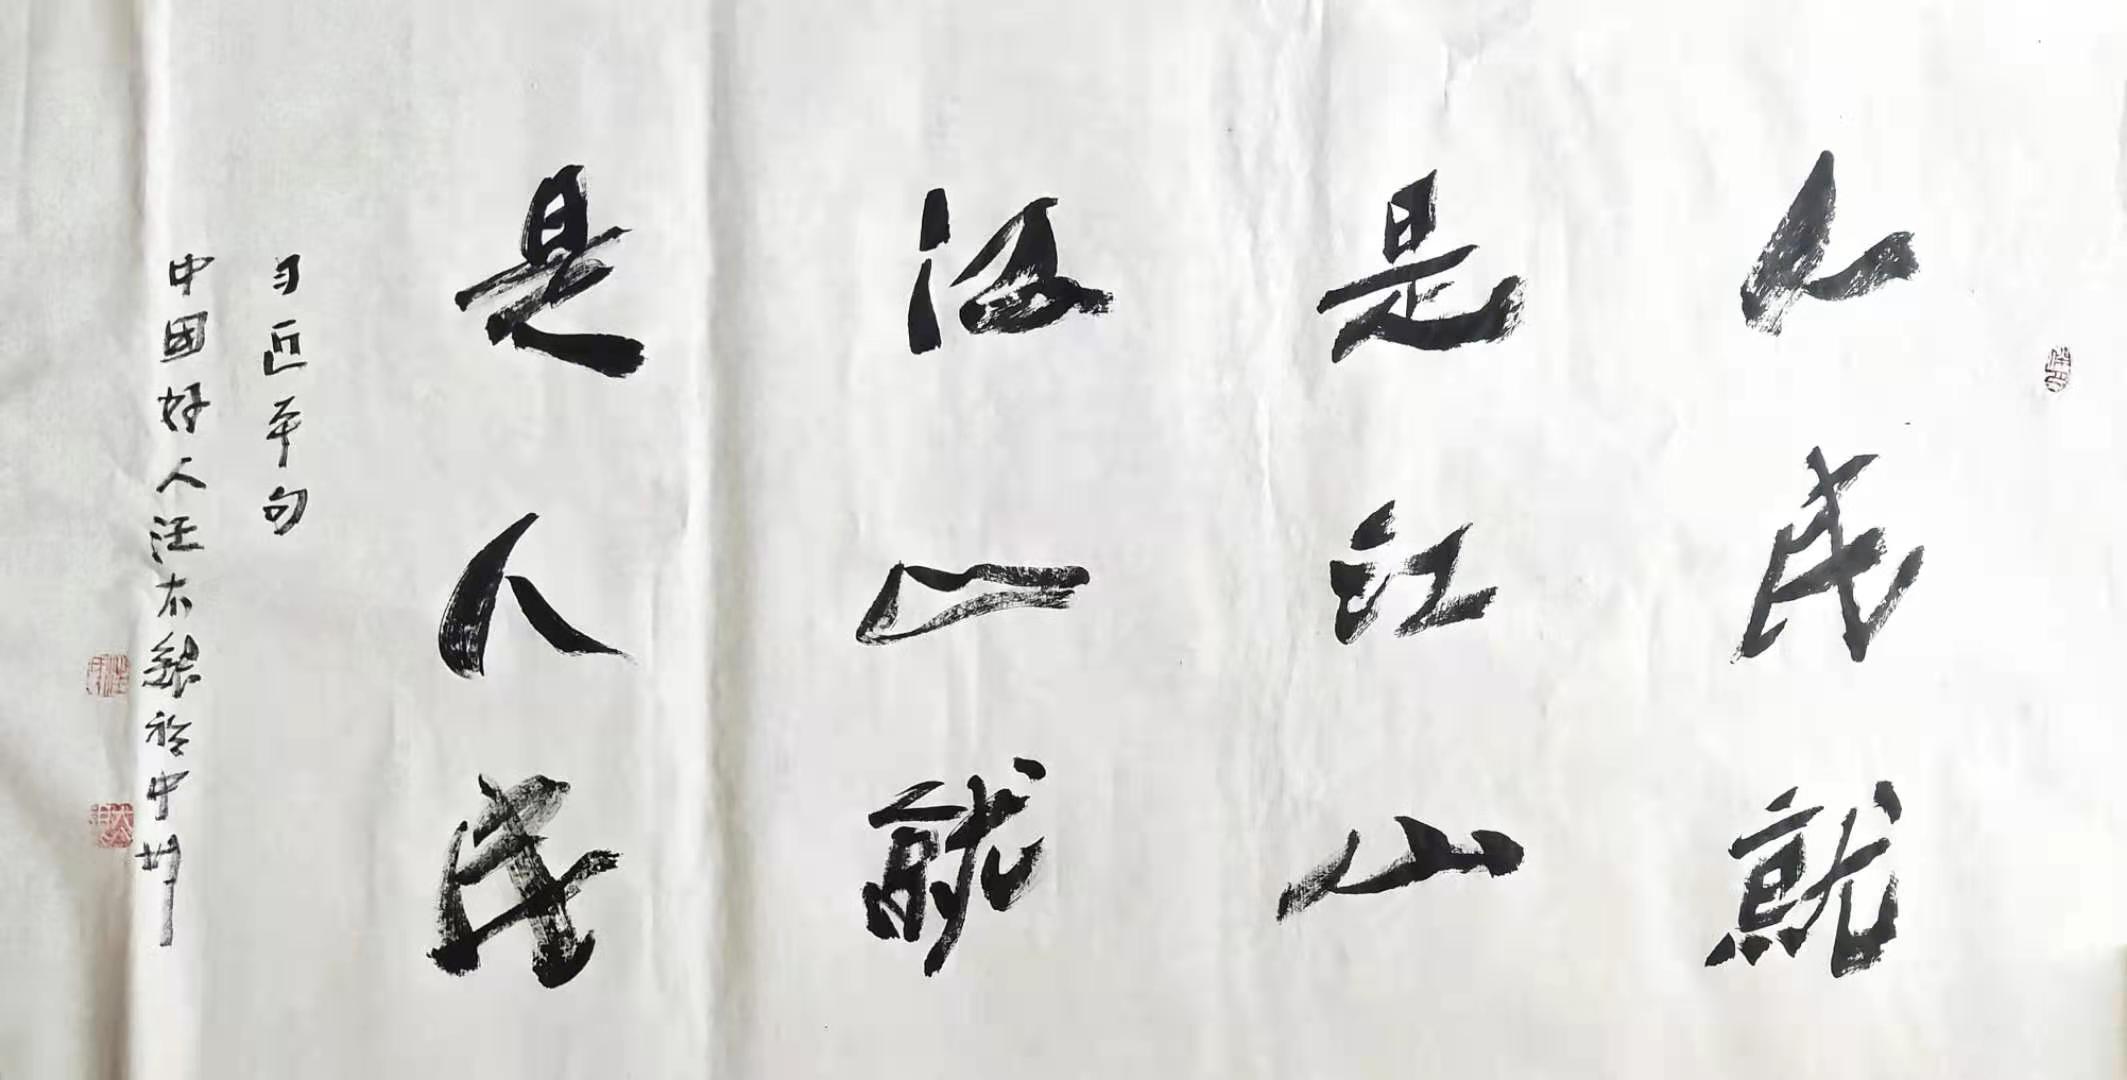 人民就
是江山
江山就
是人民
习近平句
中国好人汪木银於中州